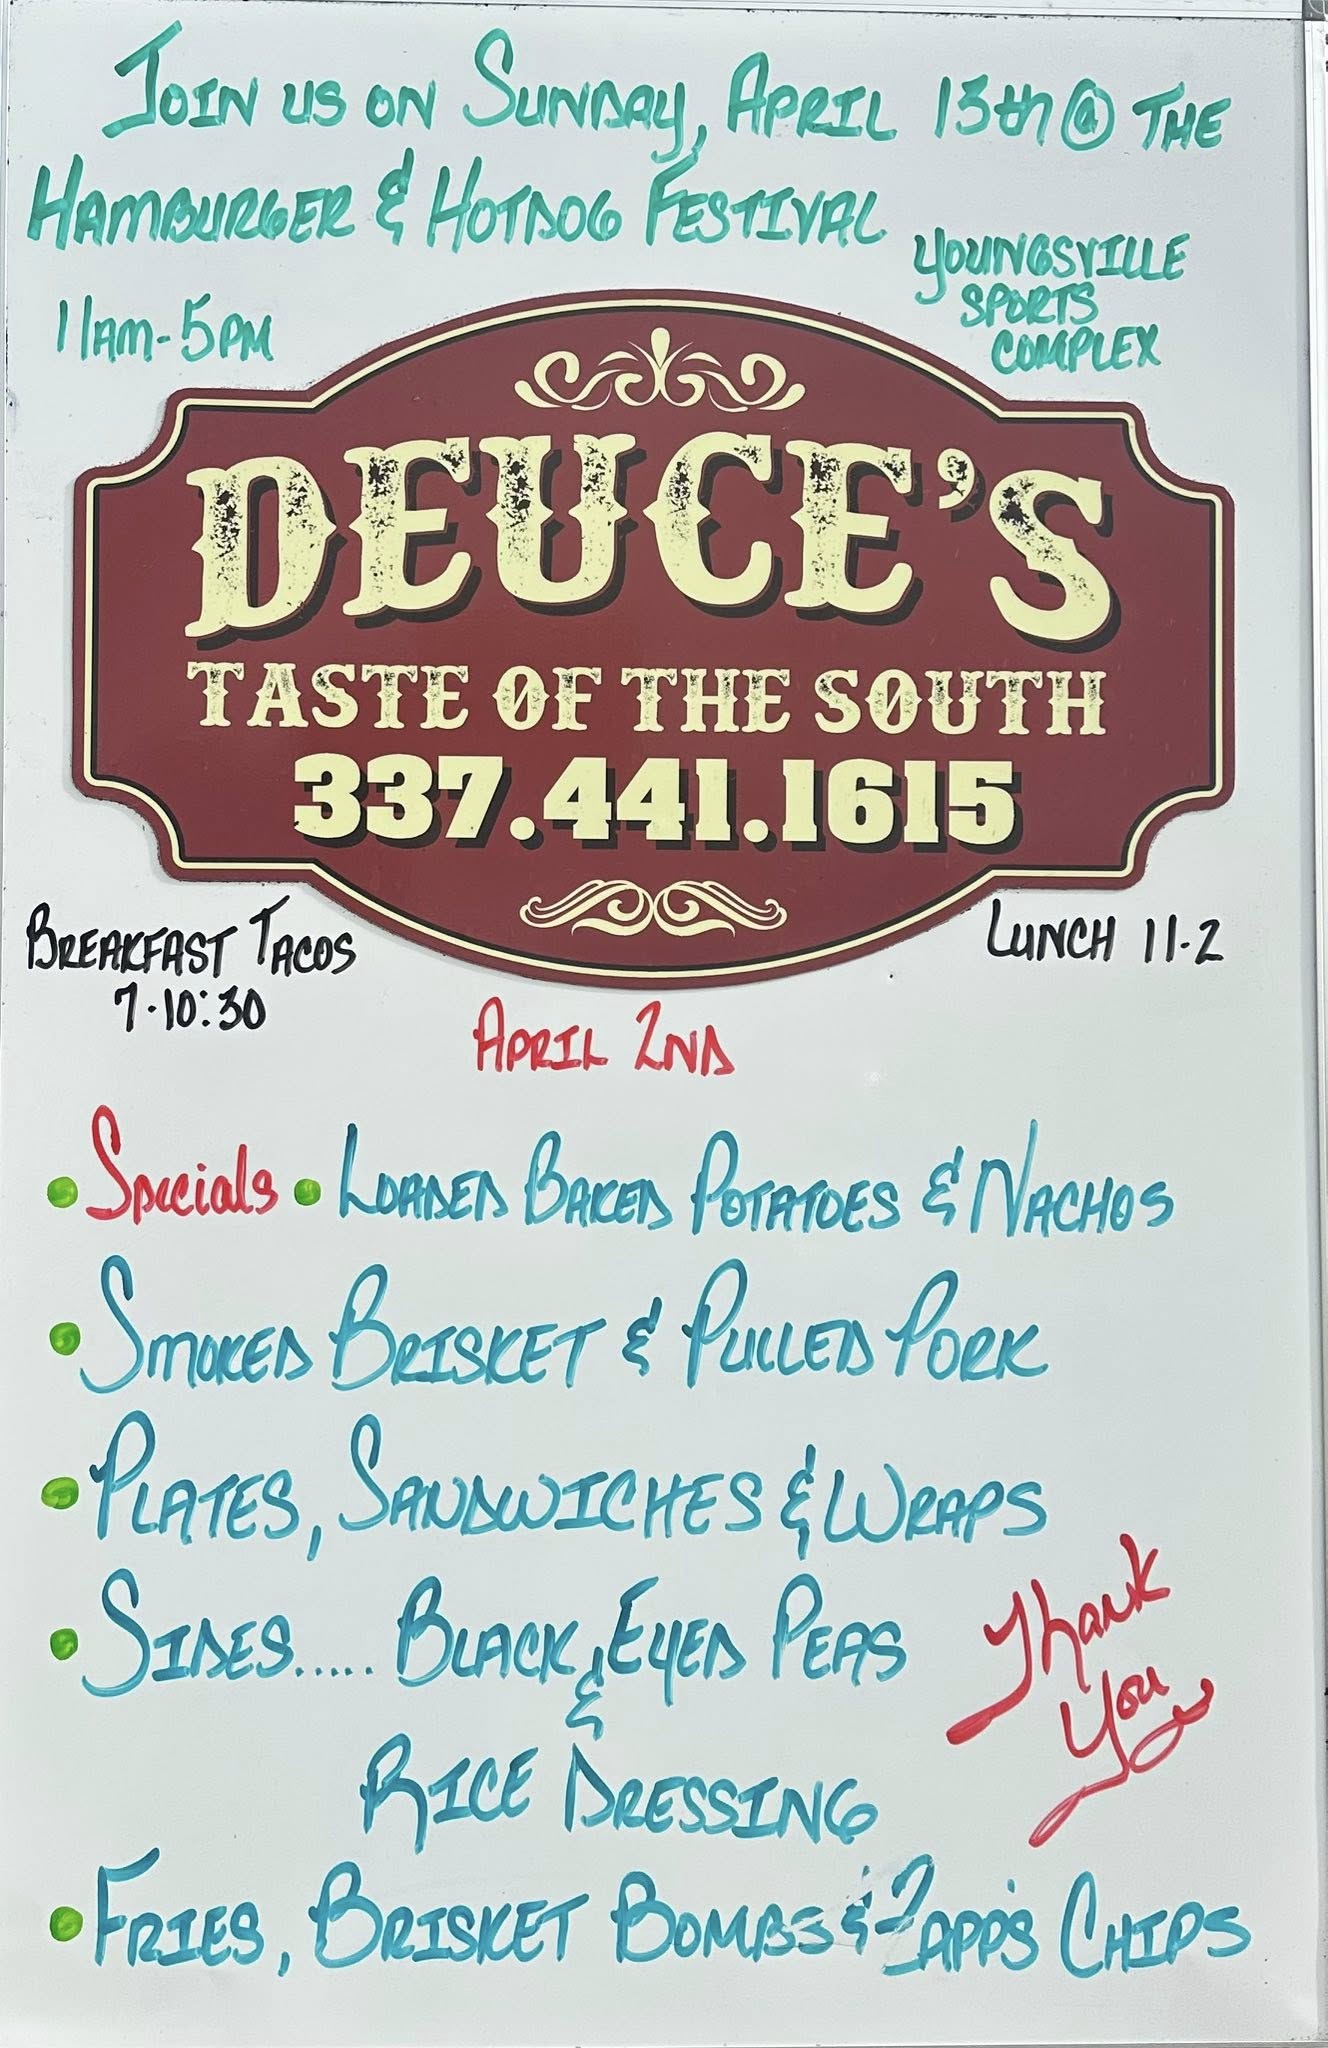 Join us on Sunday, April 13th @ The
Hamburger & Hotdog Festival
Youngsville
Sports
Complex
11am-5pm
DEUCE'S
TASTE OF THE SOUTH
337.441.1615
Breakfast Tacos
7-10:30
Lunch 11-2
April 2nd
• Specials • Loaded Baked Potatoes & Nachos
• Smoked Brisket & Pulled Pork
• Plates, Sandwiches & Wraps
• Sides..... Black Eyed Peas
&
Rice Dressing
Thank
You
• Fries, Brisket Bombs & Zapp's Chips